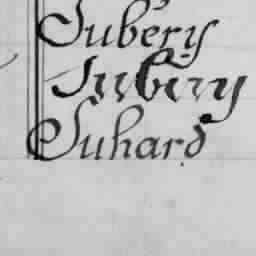 Jubery
Jubery
Suhard